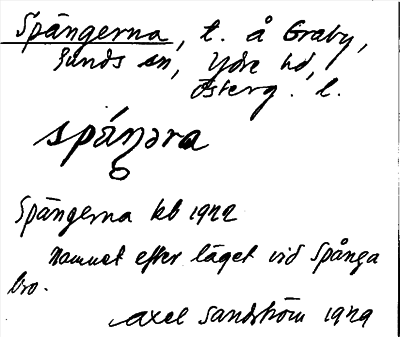 Spångerna, t. å Graby,
Sunds sn, Ydre hd,
Österg. l.
spáŋəra
Spångerna kb 1942
Namnet efter läget vid Spånga
bro.
Axel Sandström 1929